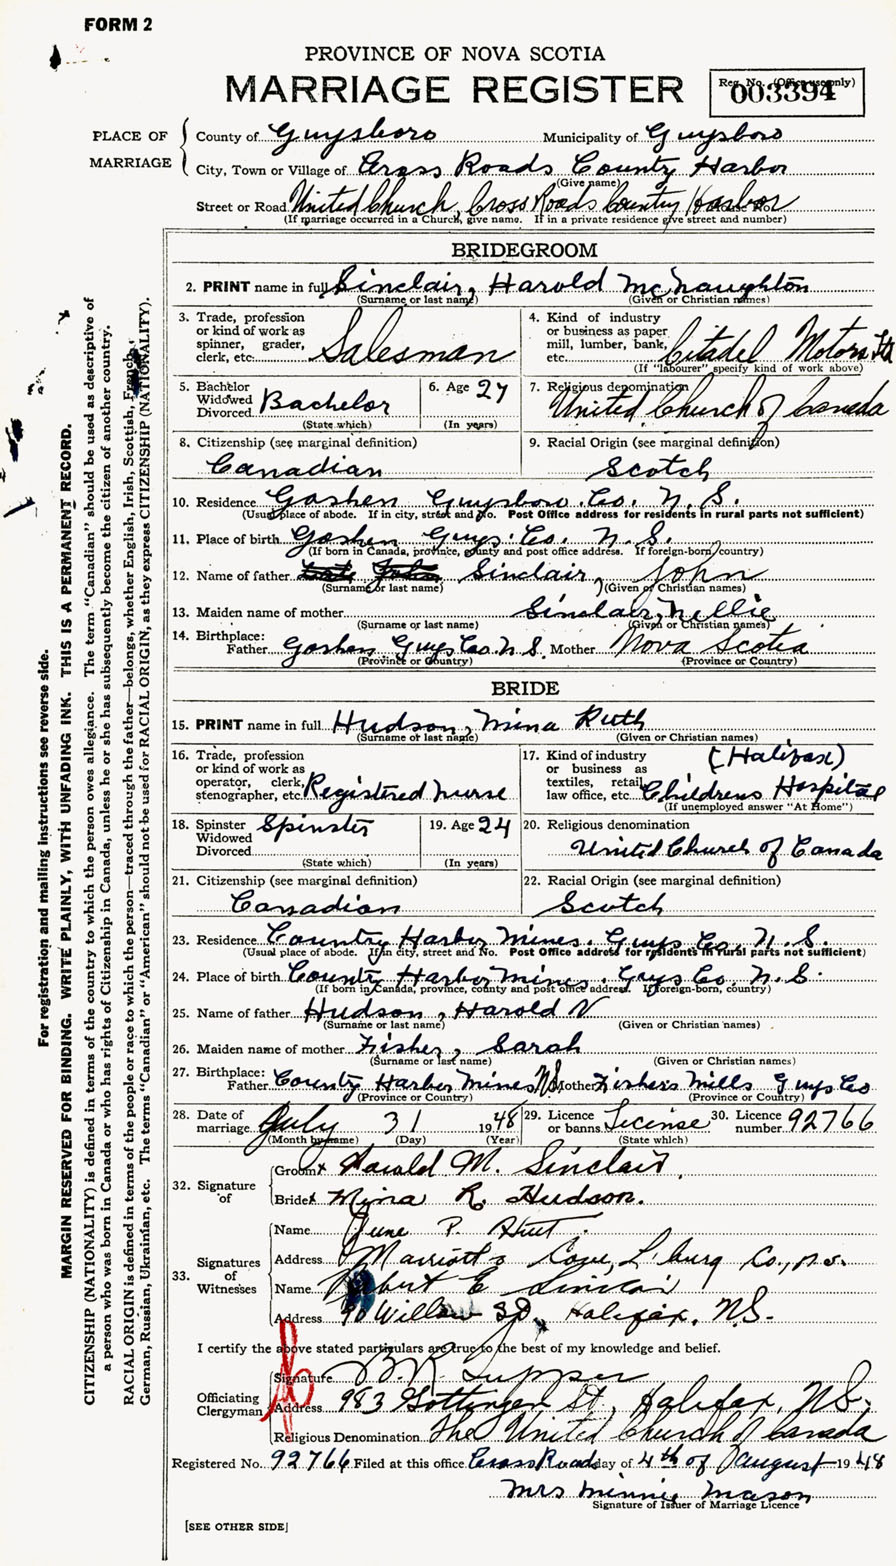 FORM 2
PROVINCE OF NOVA SCOTIA
MARRIAGE REGISTER
Reg. No. (Office use only)
003394
PLACE OF MARRIAGE
County of Guysboro Municipality of Guysboro
City, Town or Village of Cross Roads Country Harbor
(Give name)
Street or Road United Church, Cross Roads Country Harbor
(If marriage occurred in a Church, give name. If in a private residence give street and number)
BRIDEGROOM
2. PRINT name in full Sinclair, Harold McNaughton
(Surname or last name) (Given or Christian names)
3. Trade, profession or kind of work as spinner, grader, clerk, etc. Salesman
4. Kind of industry or business as paper mill, lumber, bank, etc. Citadel Motors Ltd
(If "labourer" specify kind of work above)
5. Bachelor Widowed Divorced Bachelor
(State which)
6. Age 27
(In years)
7. Religious denomination
United Church of Canada
8. Citizenship (see marginal definition)
Canadian
9. Racial Origin (see marginal definition)
Scotch
10. Residence Goshen Guysboro Co. N.S.
(Usual place of abode. If in city, street and No. Post Office address for residents in rural parts not sufficient)
11. Place of birth Goshen Guys. Co. N.S.
(If born in Canada, province, county and post office address. If foreign-born, country)
12. Name of father Sinclair, John
(Surname or last name) (Given or Christian names)
13. Maiden name of mother Sinclair, Nellie
(Surname or last name) (Given or Christian names)
14. Birthplace:
Father Goshen Guys Co. N.S. Mother Nova Scotia
(Province or Country) (Province or Country)
BRIDE
15. PRINT name in full Hudson, Mina Ruth
(Surname or last name) (Given or Christian names)
16. Trade, profession or kind of work as operator, clerk, stenographer, etc. Registered Nurse
17. Kind of industry or business as textiles, retail, law office, etc. (Halifax) Childrens Hospital
(If unemployed answer "At Home")
18. Spinster Widowed Divorced Spinster
(State which)
19. Age 24
(In years)
20. Religious denomination
United Church of Canada
21. Citizenship (see marginal definition)
Canadian
22. Racial Origin (see marginal definition)
Scotch
23. Residence Country Harbor Mines. Guys Co. N.S.
(Usual place of abode. If in city, street and No. Post Office address for residents in rural parts not sufficient)
24. Place of birth Country Harbor Mines. Guys Co. N.S.
(If born in Canada, province, county and post office address. If foreign-born, country)
25. Name of father Hudson, Harold V
(Surname or last name) (Given or Christian names)
26. Maiden name of mother Fisher, Sarah
(Surname or last name) (Given or Christian names)
27. Birthplace:
Father Country Harbor Mines NS Mother Fishers Mills Guys Co
(Province or Country) (Province or Country)
28. Date of marriage July 31 1948
(Month by name) (Day) (Year)
29. Licence or banns License
(State which)
30. Licence number 92766
32. Signature of
Groom x Harold M. Sinclair
Bride x Mina R. Hudson.
33. Signatures of Witnesses
Name June P. Hutt.
Address Marriott's Cove, L'burg Co., N.S.
Name Robert E Sinclair
Address 90 Willow St. Halifax, N.S.
I certify the above stated particulars are true to the best of my knowledge and belief.
Officiating Clergyman
Signature B.R. Tupper
Address 983 Gottingen St, Halifax, N.S.
Religious Denomination The United Church of Canada
Registered No. 92766 Filed at this office Cross Roads day of 4th of August 1948
Mrs Minnie Mason
Signature of Issuer of Marriage Licence
[SEE OTHER SIDE]
For registration and mailing instructions see reverse side.
MARGIN RESERVED FOR BINDING. WRITE PLAINLY, WITH UNFADING INK. THIS IS A PERMANENT RECORD.
CITIZENSHIP (NATIONALITY) is defined in terms of the country to which the person owes allegiance. The term "Canadian" should be used as descriptive of
a person who was born in Canada or who has rights of Citizenship in Canada, unless he or she has subsequently become the citizen of another country.
RACIAL ORIGIN is defined in terms of the people or race to which the person—traced through the father—belongs, whether English, Irish, Scottish, French,
German, Russian, Ukrainian, etc. The terms "Canadian" or "American" should not be used for RACIAL ORIGIN, as they express CITIZENSHIP (NATIONALITY).